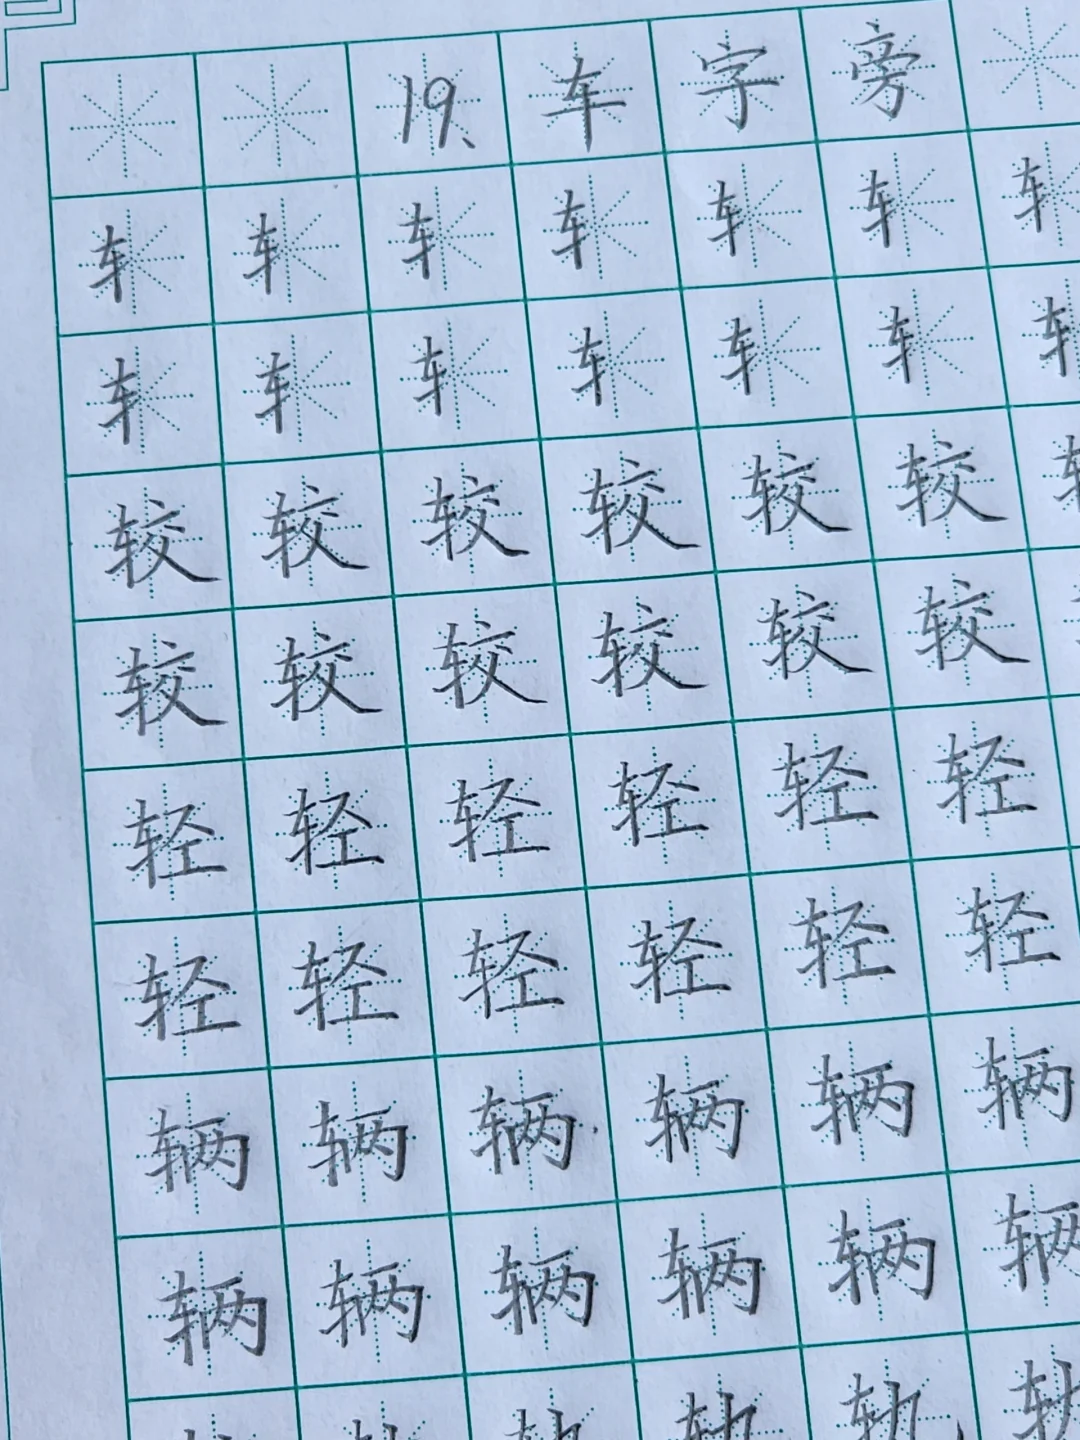 19、车字旁
车车车车车车车
车车车车车车车
较较较较较较
较较较较较较
轻轻轻轻轻轻
轻轻轻轻轻轻
辆辆辆辆辆辆
辆辆辆辆辆辆